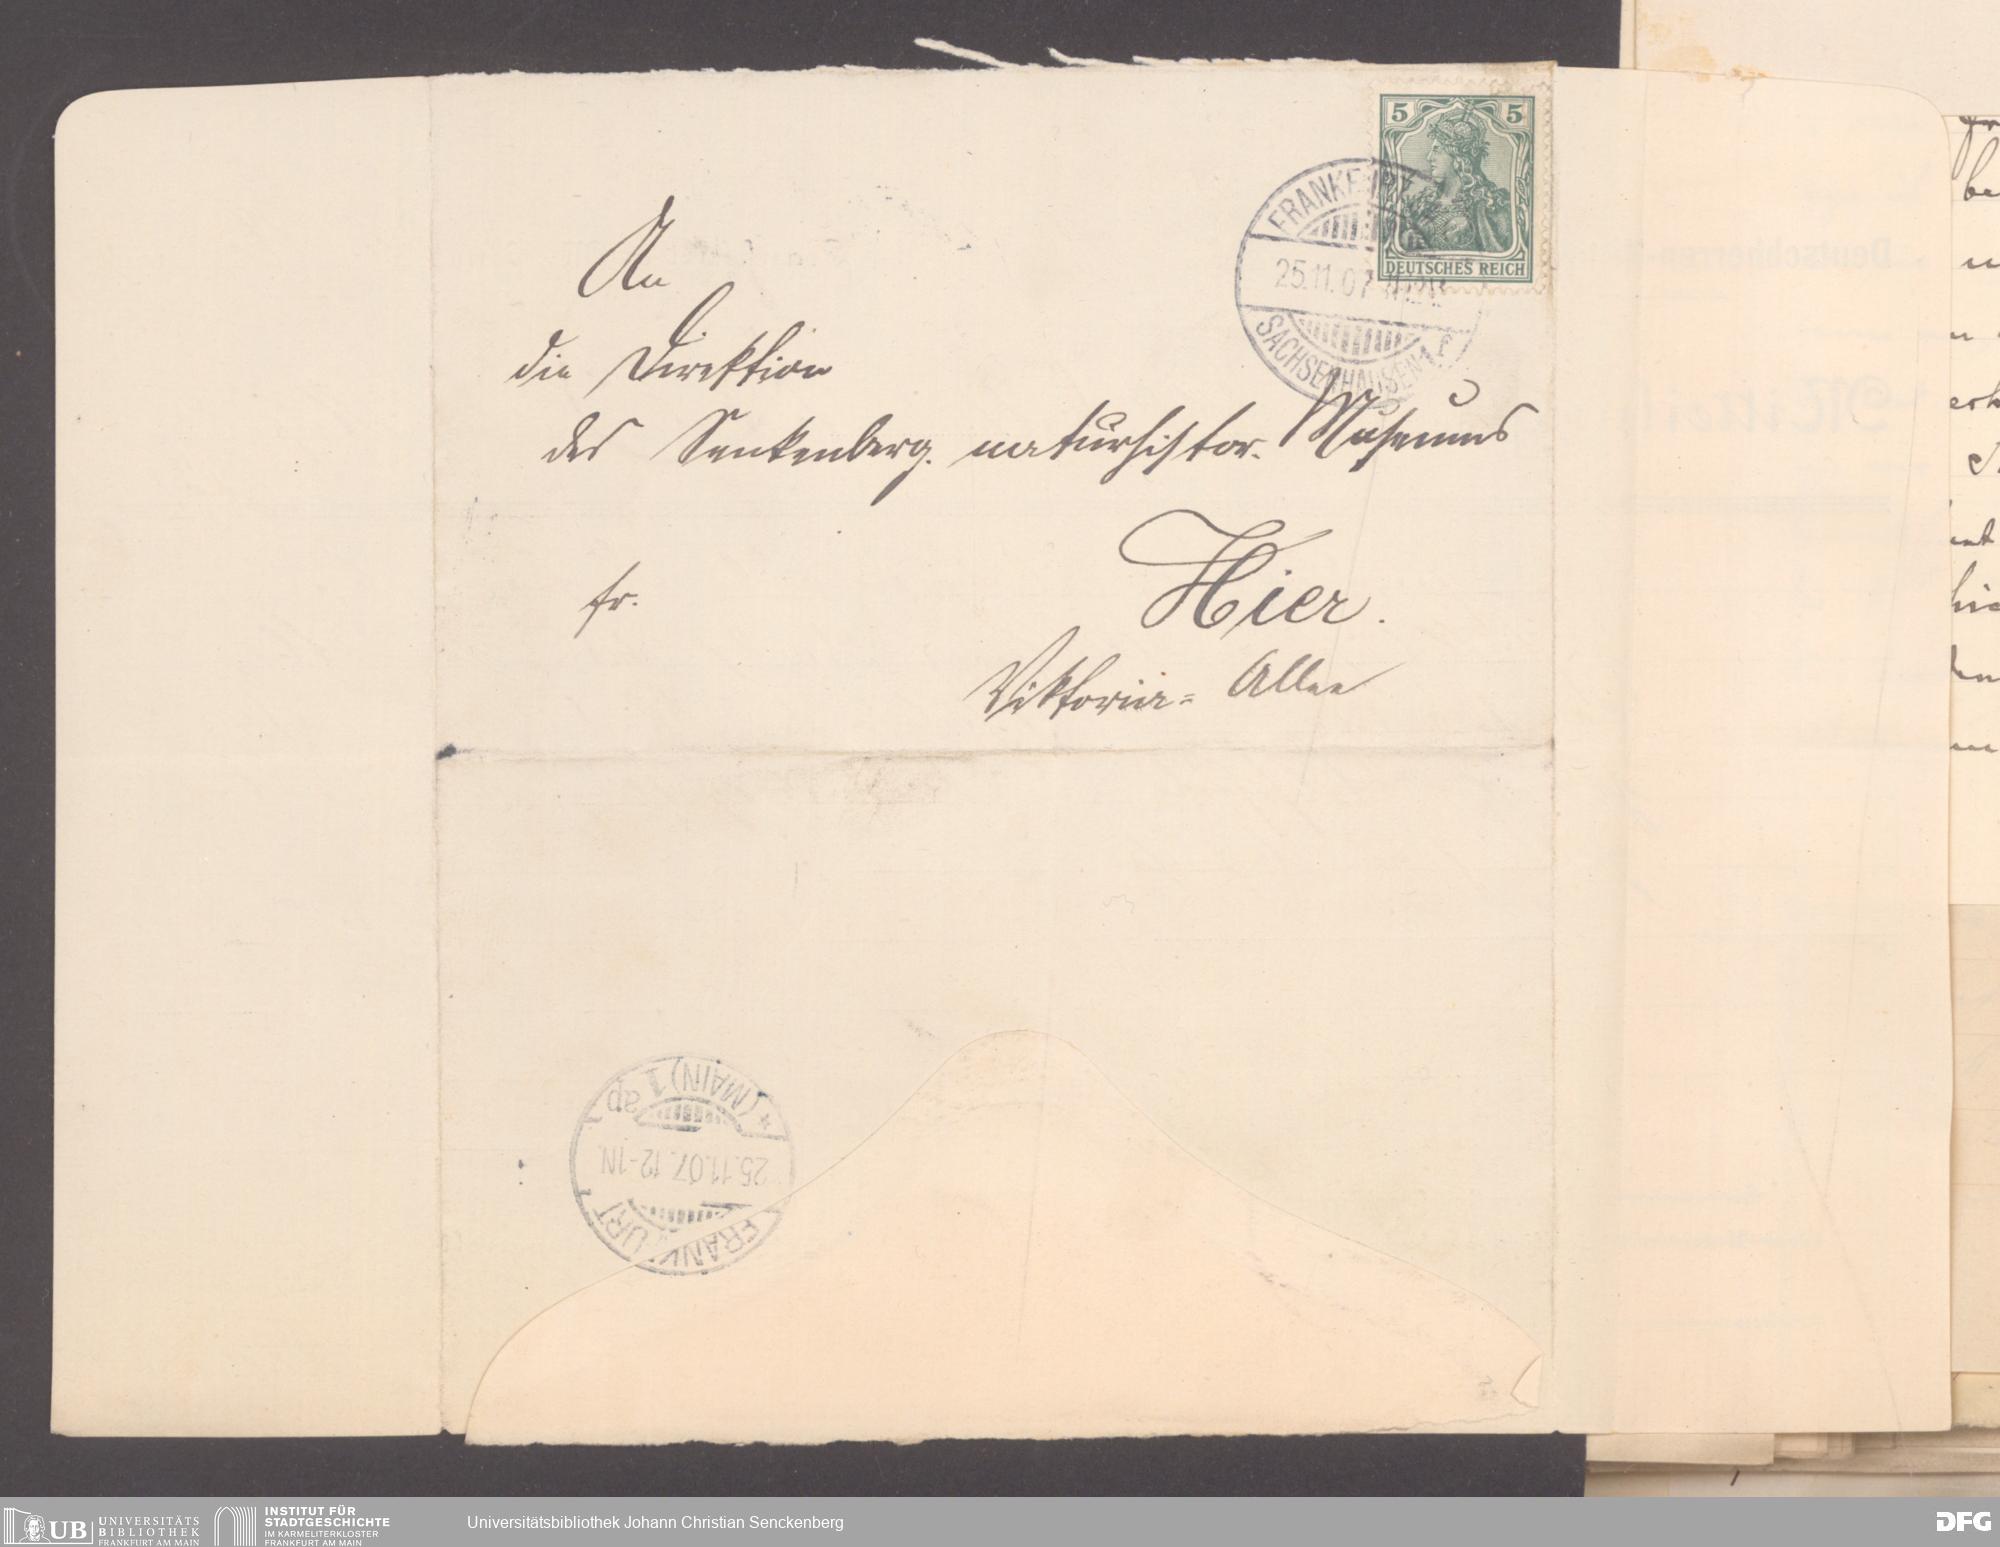 5 5
DEUTSCHES REICH
FRANKFURT
25.11.07
SACHSENHAUSEN 1 f
An
die Direktion
des Senkenberg. naturhistor. Museums
fr.
Hier.
Viktoria= Allee
FRANKFURT
25.11.07. 12-1N.
* (MAIN) 1 ap
UB UNIVERSITÄTS
BIBLIOTHEK
FRANKFURT AM MAIN
INSTITUT FÜR
STADTGESCHICHTE
IM KARMELITERKLOSTER
FRANKFURT AM MAIN
Universitätsbibliothek Johann Christian Senckenberg
DFG